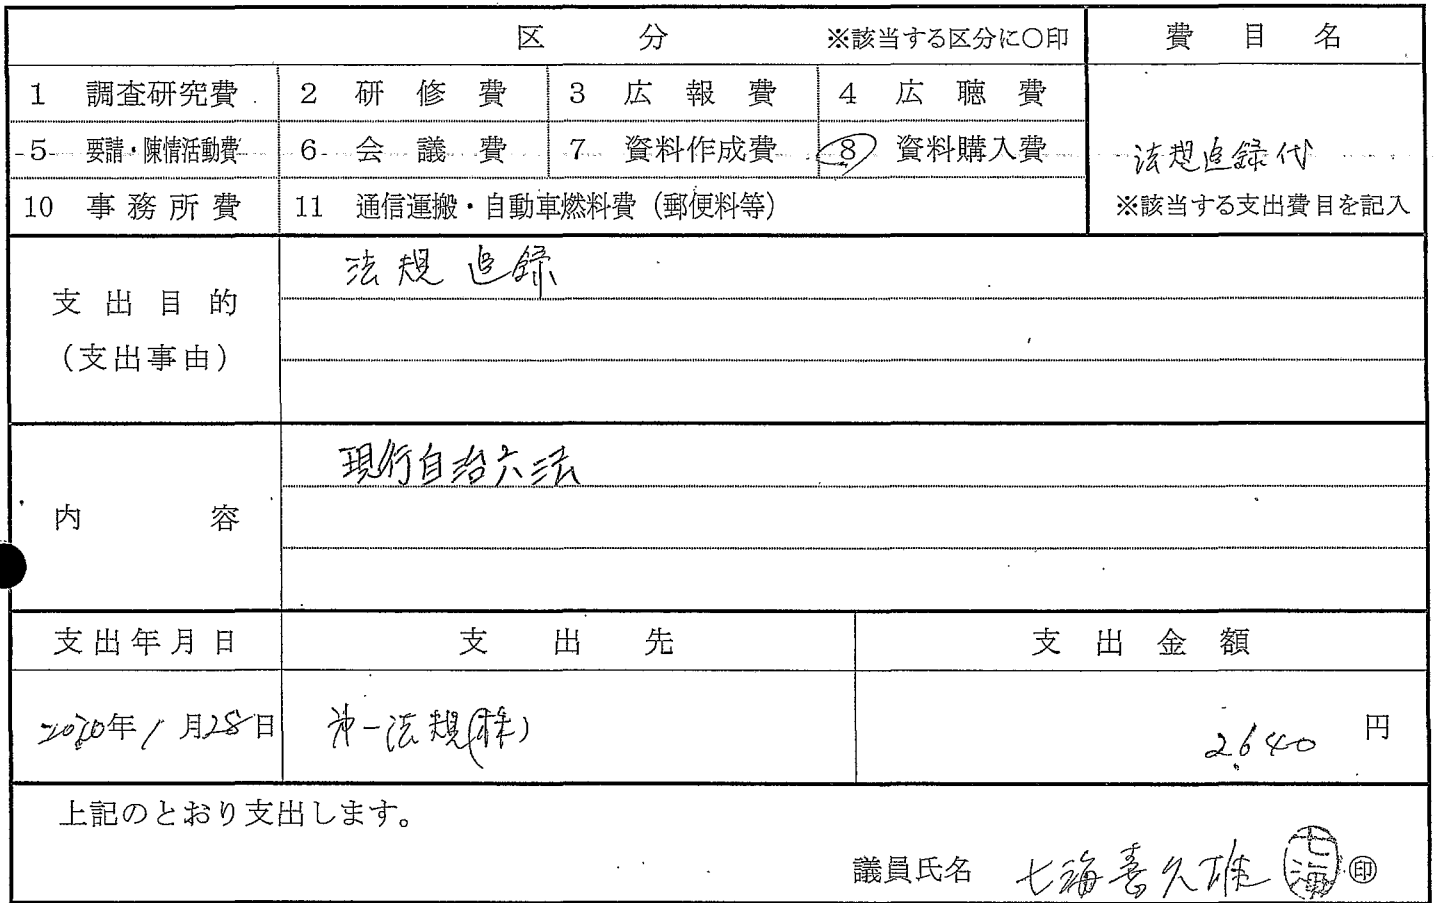 区 分 ※該当する区分に○印 費目名
1 調査研究費 2 研修費 3 広報費 4 広聴費
5 要請・陳情活動費 6 会議費 7 資料作成費 8 資料購入費 法規追録代
10 事務所費 11 通信運搬・自動車燃料費（郵便料等） ※該当する支出費目を記入
法規追録
支出目的
（支出事由）
現行自治六法
内容
支出年月日 支出先 支出金額
2020年1月28日 第一法規(株) 2640円
上記のとおり支出します。
議員氏名 七海喜久雄 七海 ㊞